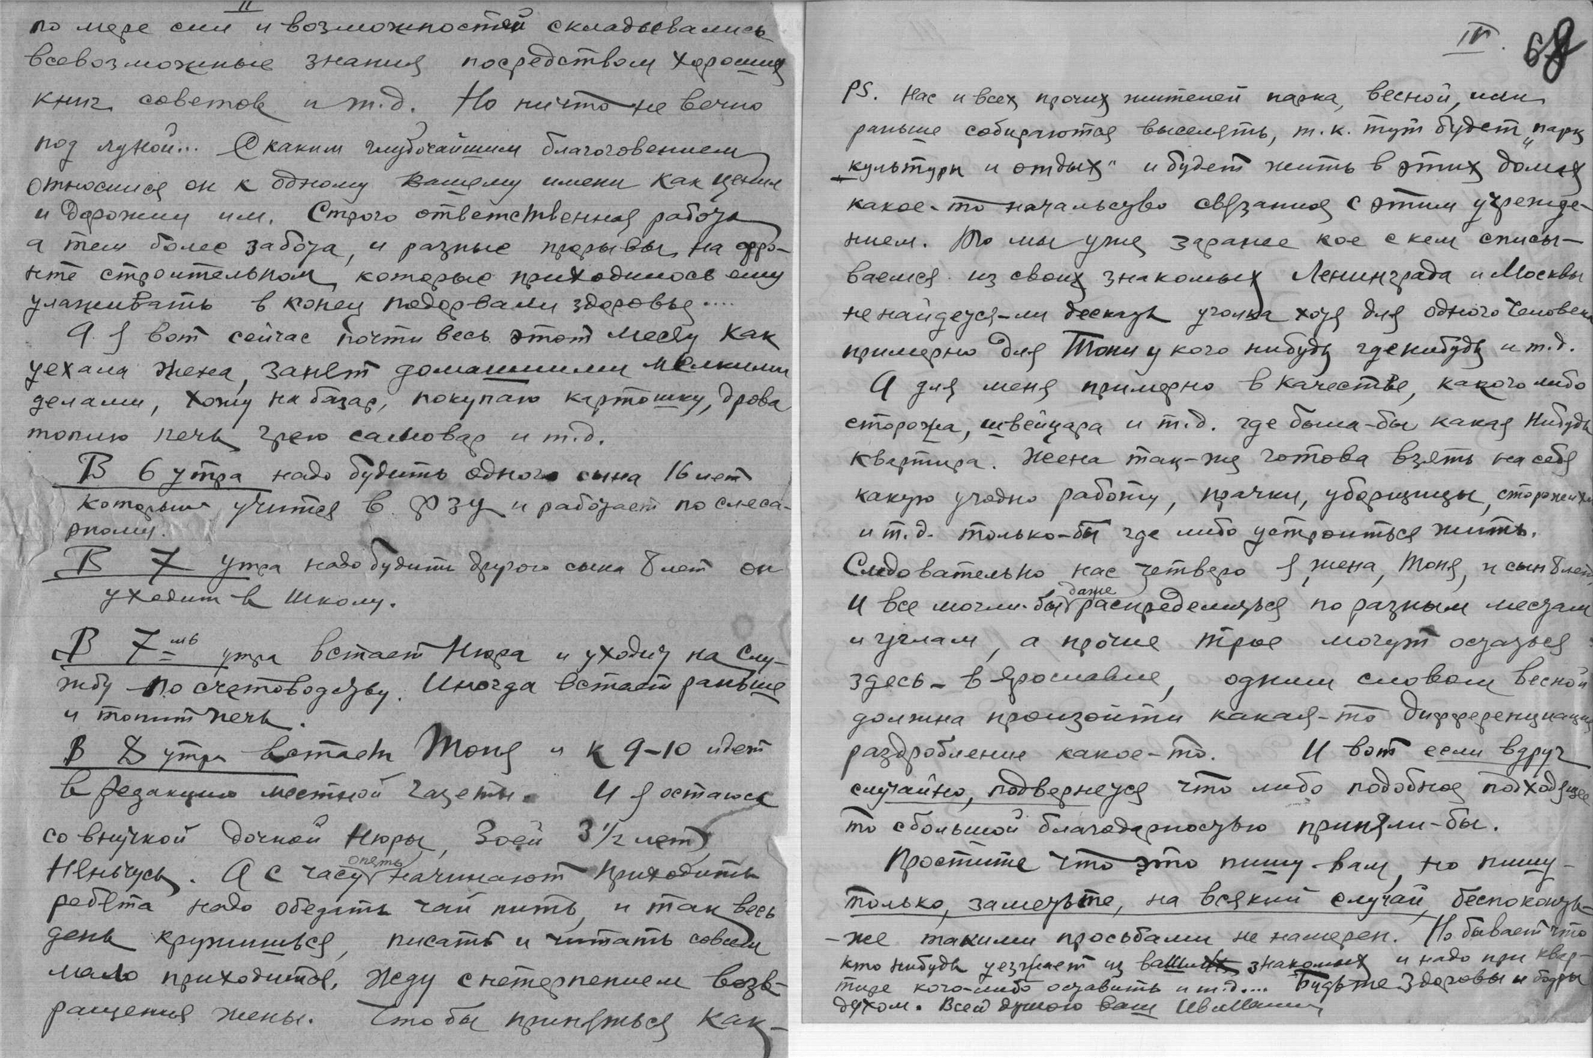 II
по мере сил и возможностей складывались
всевозможные знания посредством хороших
книг советов и т.д. Но ничто не вечно
под луной... С каким глубочайшим благоговением
относился он к одному Вашему имени как ценил
и дорожил им. Строго ответственная работа
а тем более забота, и разные прорывы на фро-
нте строительном, которые приходилось ему
улаживать в конец подорвали здоровье....
А я вот сейчас почти весь этот месяц как
уехала жена, занят домашними мелкими
делами, хожу на базар, покупаю картошку, дрова
топлю печь грею самовар и т.д.
В 6 утра надо будить одного сына 16 лет
который учится в ФЗУ и работает по слеса-
рному.
В 7 утра надо будить другого сына 8 лет он
уходит в школу.
В 7 утра встает Нюра и уходит на слу-
жбу по счетоводству. Иногда встает раньше
и топит печь.
В 8 утра встает Тоня и к 9-10 идет
в редакцию местной газеты. И я остаюсь
со внучкой дочкой Нюры, Зоей 3 1/2 лет
Няньчусь. А с часу опять начинают приходить
ребята надо обедать чай пить, и так весь
день кружишься, писать и читать совсем
мало приходится. Жду с нетерпением возв-
ращения жены. Чтобы приняться как-
IV. 68
PS. Нас и всех прочих жителей парка, весной, или
раньше собираются выселять, т.к. тут будет "парк
культуры и отдых" и будет жить в этих домах
какое-то начальсво связанное с этим учрежде-
нием. То мы уже заранее кое с кем списы-
ваемся из своих знакомых Ленинграда и Москвы
не найдется-ли дескать уголка хотя для одного человека
примерно для Тони у кого нибудь где нибудь и т.д.
А для меня примерно в качестве, какого либо
сторожа, швейцара и т.д. где была-бы какая нибудь
квартира. Жена так-же готова взять на себя
какую угодно работу, прачки, уборщицы, сторожихи
и т.д. только-бы где либо устроиться жить.
Следовательно нас четверо я, жена, Тоня, и сын 8 лет
И все могли-бы даже распределиться по разным местам
и углам, а прочие трое могут остаться
здесь-в Ярославле, одним словом весной
должна произойти какая-то дифференциация
раздробление какое-то. И вот если вдруг
случайно, подвернется что либо подобное подходящее
то с большой благодарностью приняли-бы.
Простите что это пишу вам, но пишу-
только, заметьте, на всякий случай, беспокоить-
-же такими просьбами не намерен. Но бывает что
кто нибудь уезжает из ваших знакомых и надо при квар-
тире кого-либо оставить и т.д.... Будьте здоровы и бодры
духом. Всей душою ваш